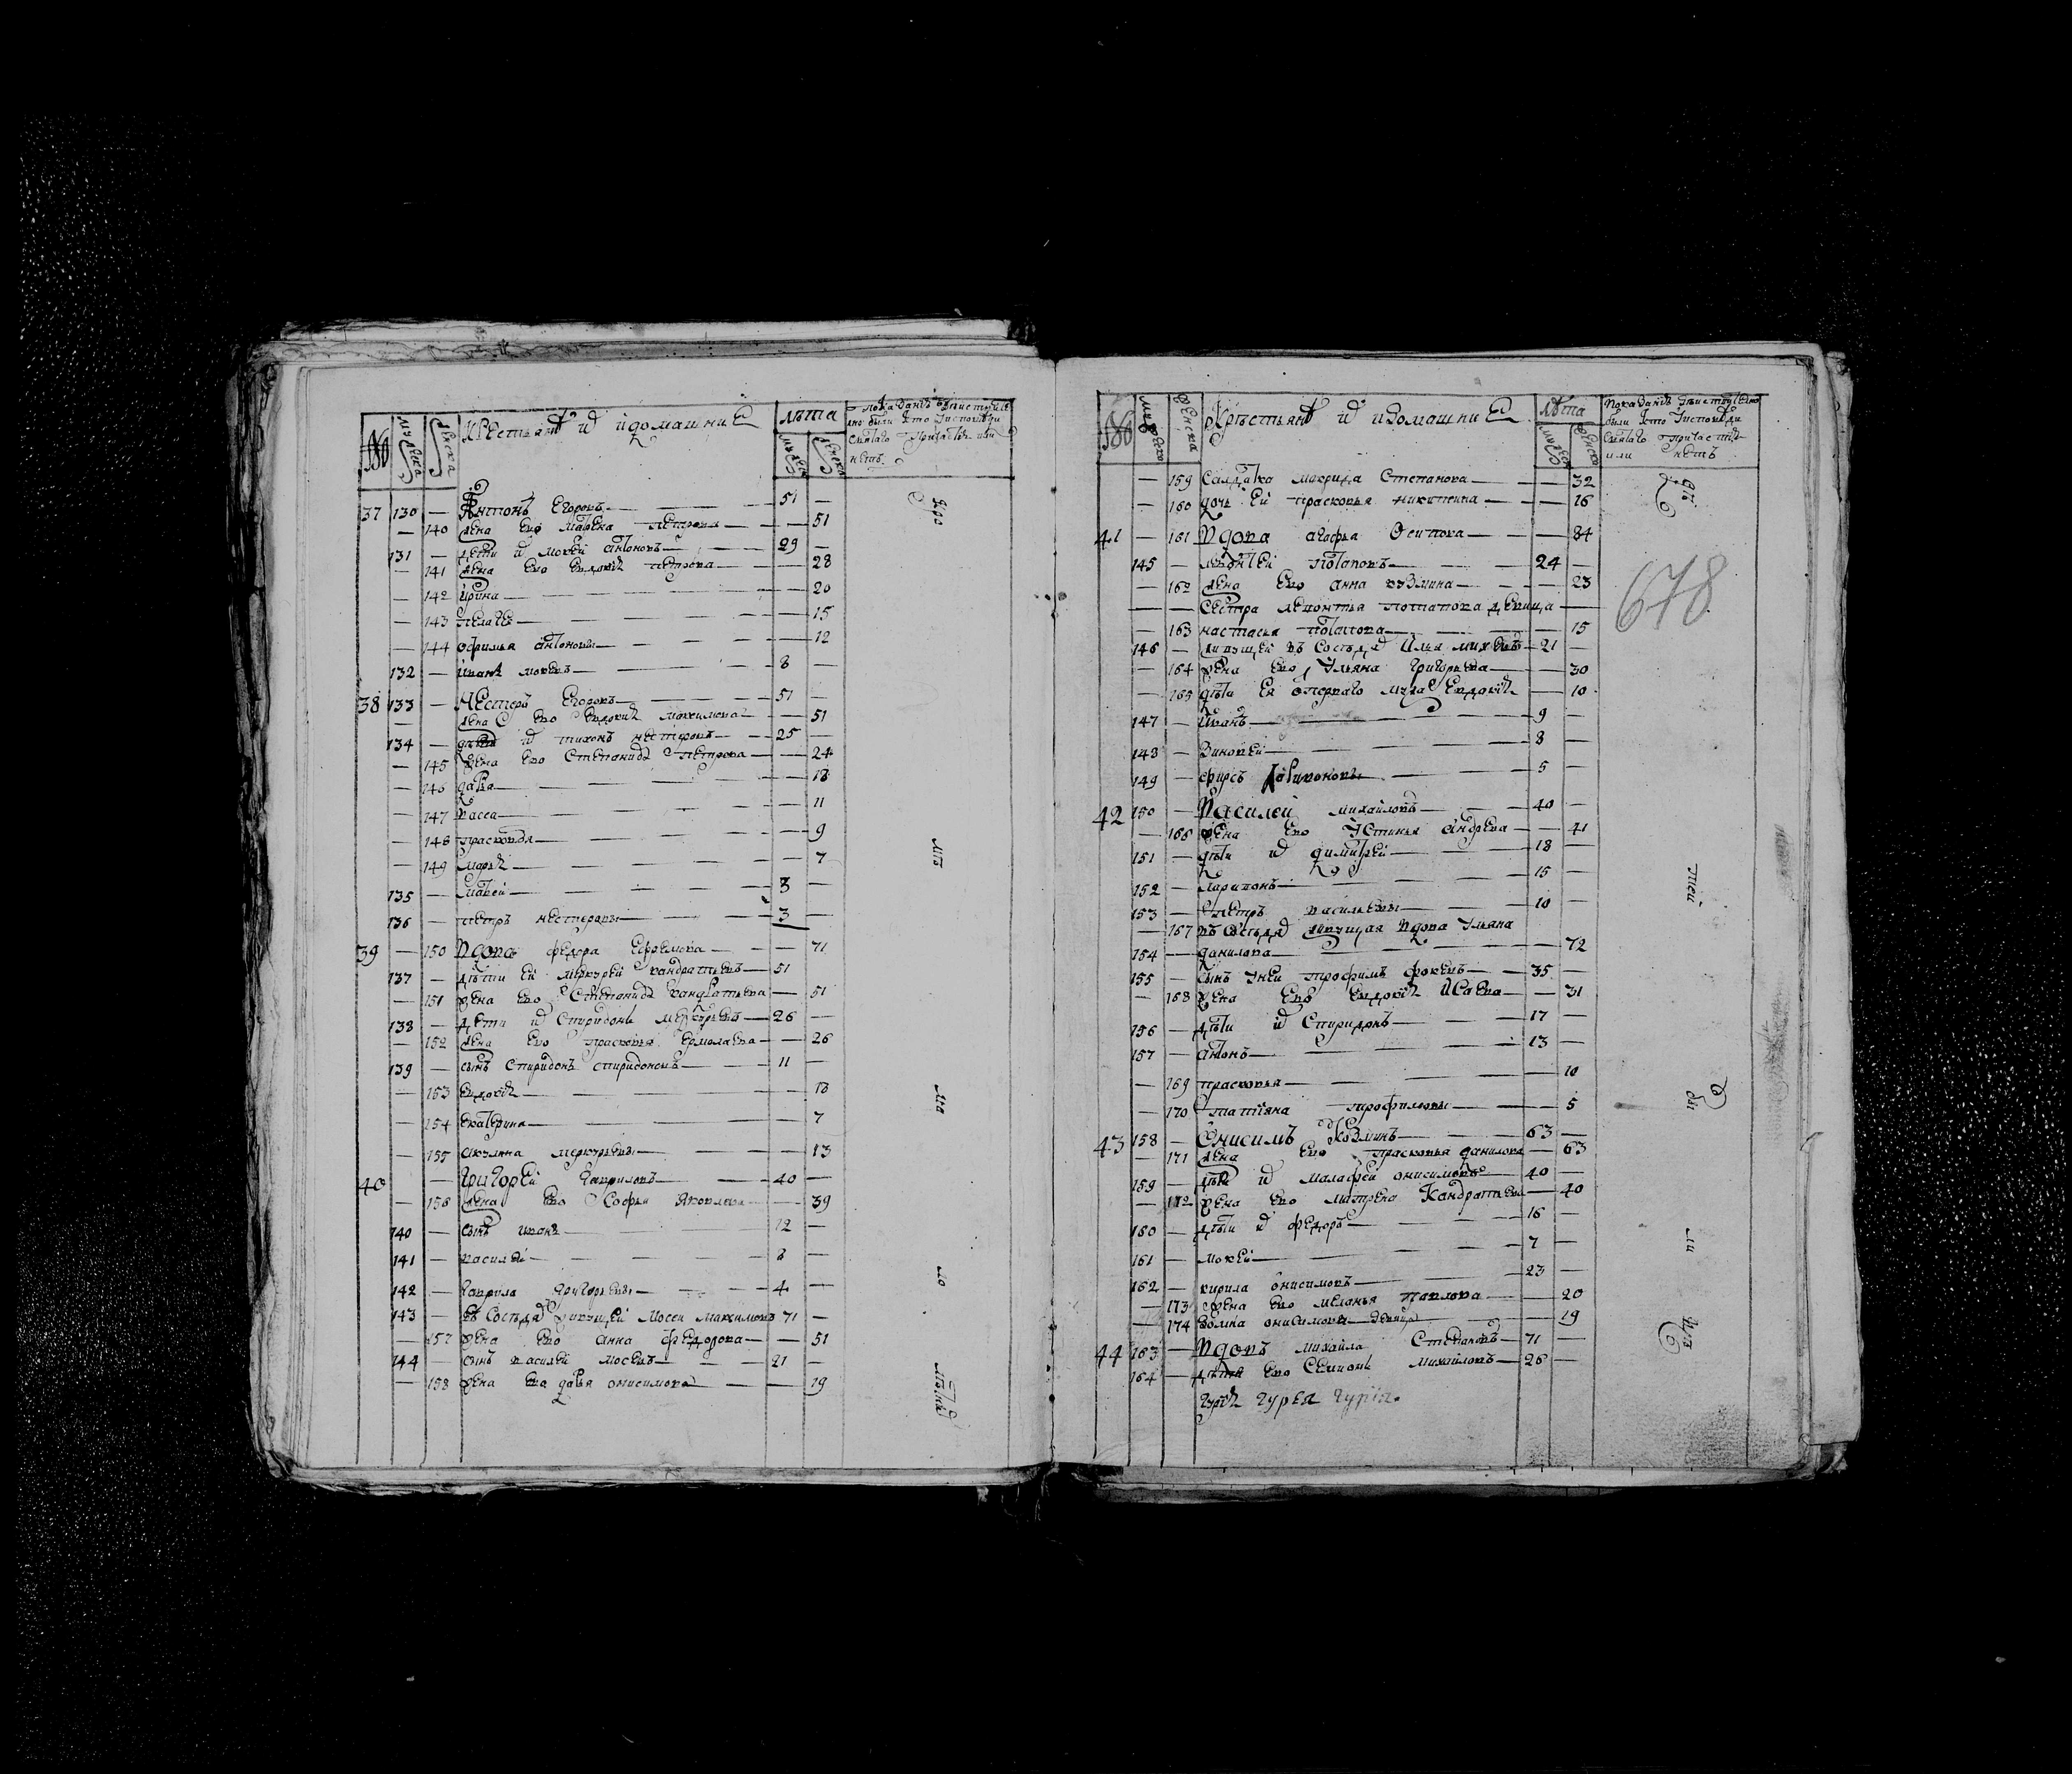 № мужеска женска Крестьянъ и ихъ и домашние лѣта
мужеск женска
37 130 — Антонъ Егоровъ — 51 —
— 140 жена ево Матрена Петрова — — 51
131 — дети их Мокей Антоновъ — 29 —
— 141 жена ево Евдокия Петрова — — 28
— 142 Ирина — — 20
— 143 Пелагея — — 15
— 144 Офимья Антоновы — — 12
132 — Иванъ Мокеевъ — 8 —
38 133 — Нестеръ Егоровъ — 51 —
— жена ево Евдокия Максимова — — 51
134 — дети их Тихонъ Нестеровъ — 25 —
— 145 жена ево Степанида Петрова — — 24
— 146 дарья — — 18
— 147 Васса — — 11
— 148 Прасковья — — 9
— 149 Марья — — 7
135 — Матвей — 8 —
136 — Петръ Нестеровы — 3 —
39 — 150 Вдова Федора Ефремова — — 71
137 — дѣти ей Меркурей Кандратьевъ — 51
— 151 жена ево Степанида Кандратьева — 51
138 — дѣти их Спиридонъ Меркурьевъ — 26 —
— 152 жена ево Прасковья Ермолаева — — 26
139 — сынъ Спиридонъ Спиридоновъ — 11 —
— 153 Евдокия — — 18
— 154 Екатерина — — 7
— 155 Акулина Меркурьевы — — 13
40 — Григорей Гавриловъ — 40 —
— 156 жена ево Софья Яковлева — — 39
140 — сынъ Иванъ — 12 —
141 — Василей — 8 —
142 — Гаврила Григорьевы — 4 —
143 — въ Сосѣдях живущей Мосей Максимовъ 71 —
— 157 жена ево Анна Федорова — — 51
144 — сынъ Василей Мосеевъ — 21 —
— 158 жена ево дарья Онисимова — — 19
№ мужеска женска Крестьянъ ихъ и домашние лѣта
мужеск женска
— 159 Салдатка Макрида Степанова — — 32
— 160 дочь ей Прасковья Никитина — — 16
41 — 161 Вдова Агафья Осипова — — 84
145 — Леонтей Потаповъ — 24 —
— 162 жена ево Анна Кузмина — — 23
— — Сестра Леонтья Потапова девица —
— 163 Настасья Потапова — — 15
146 — живущей въ Сосѣдях Илья Михеевъ — 21 —
— 164 жена ево Ульяна Григорьева — — 30
— 165 дѣти ея отперваго мужа Евдокия — 10
147 — Иванъ — 9 —
148 — Зиновей — 8 —
149 — Фирсъ — 5 —
42 150 — Василей Михайловъ — 40 —
— 166 жена ево Устинья Андреева — — 41
151 — дѣти их димитрей — 18 —
152 — Ларивонъ — 15 —
153 — Петръ Васильевы — 10 —
— 167 въ сосѣдях живущая Вдова Ульяна
154 — данилова — — 72
155 — сынъ Уней Трофимъ Фокеевъ — 35 —
— 168 жена ево Евдокия Исаева — — 31
156 — дѣти их Спиридонъ — 17 —
157 — Антонъ — 13 —
— 169 Прасковья — — 10
— 170 Татияна Трофимовы — — 5
43 158 — Онисимъ Козминъ — 63 —
— 171 жена ево Прасковья данилова — 63
159 — дѣти их Малафей Онисимовъ — 40 —
— 172 жена ево Матрена Кандратьева — 40
160 — дѣти их Федоръ — 16 —
161 — Мокей — 7 —
162 — Кирила Онисимовъ — 23 —
— 173 жена ево Меланья Павлова — — 20
— 174 Онисимова девица — 19
44 163 — Вдовъ Михайла Степановъ — 71 —
164 — дѣти ево Семионъ Михайловъ — 26 —
Гурея Гурия.
678